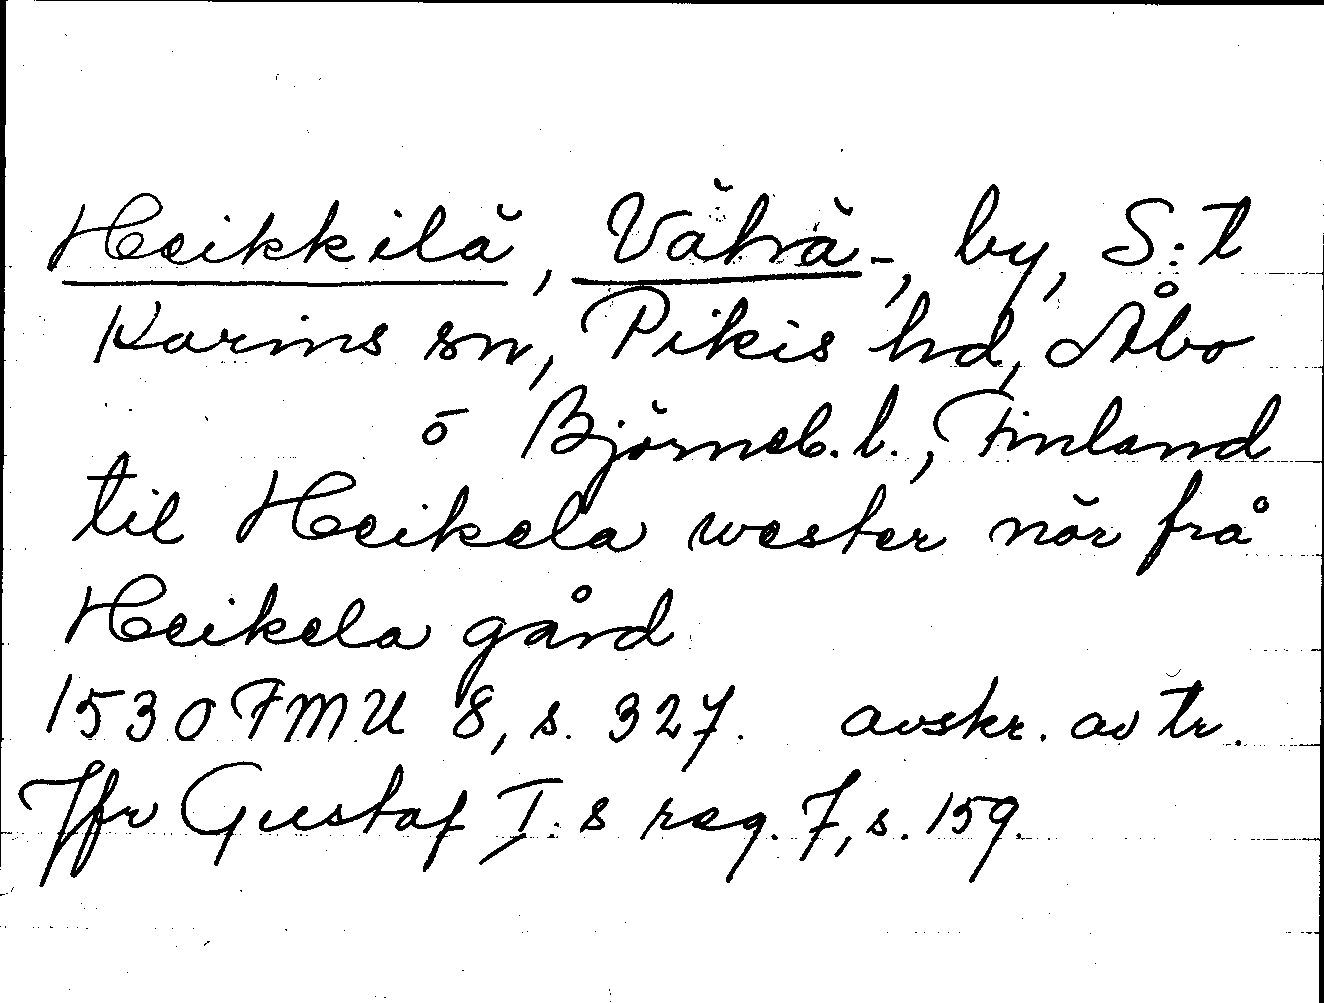 Heikkilä, Vähä-, by, S:t
Karins sn, Pikis hd, Åbo
o Björneb. l., Finland
til Heikela wester när frå
Heikela gård
1530 FMU 8, s. 327. avskr. av tr.
Jfr Gustaf I:s reg. 7, s. 159.